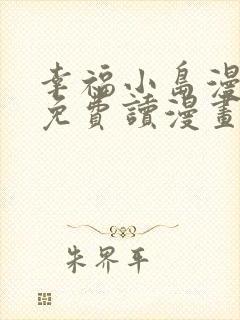 幸福小島漫
免費讀漫畫
朱界平